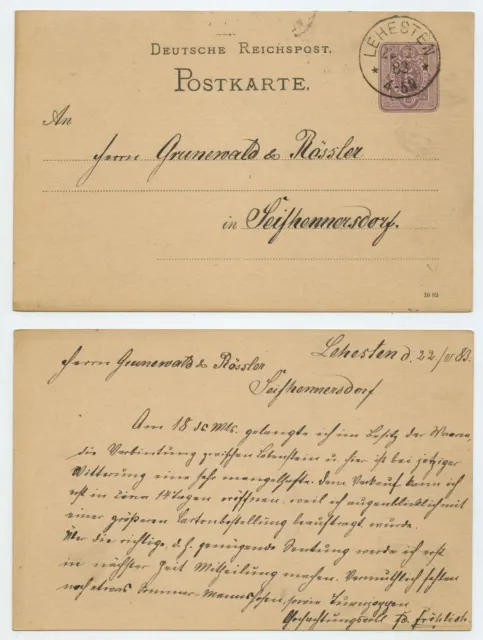 DEUTSCHE REICHSPOST.
POSTKARTE.
LEHESTEN
83
4-5N
An
Herrn Grunewald & Rössler
in Seifhennersdorf.
10 82
Lehesten d. 22/III 83.
Herrn Grunewald & Rössler
Seifhennersdorf
Am 18 Mts. gelangte ich im Besitz der Waaren,
die Verbindung zwischen Lobenstein u. hier ist bei jetziger
Witterung eine sehr mangelhafte. Den Verkauf kann ich
erst in 14 Tagen eröffnen, weil ich augenblicklich mit
einer größeren Cartonbestellung beauftragt wurde.
Über die richtige, d. h. genügende Sendung werde ich erst
in nächster Zeit Mitteilung machen. Vermuthlich fehlen
noch etwas Sommer-Mannshosen, sowie Turnjoppen
Hochachtungsvoll Fröhlich.